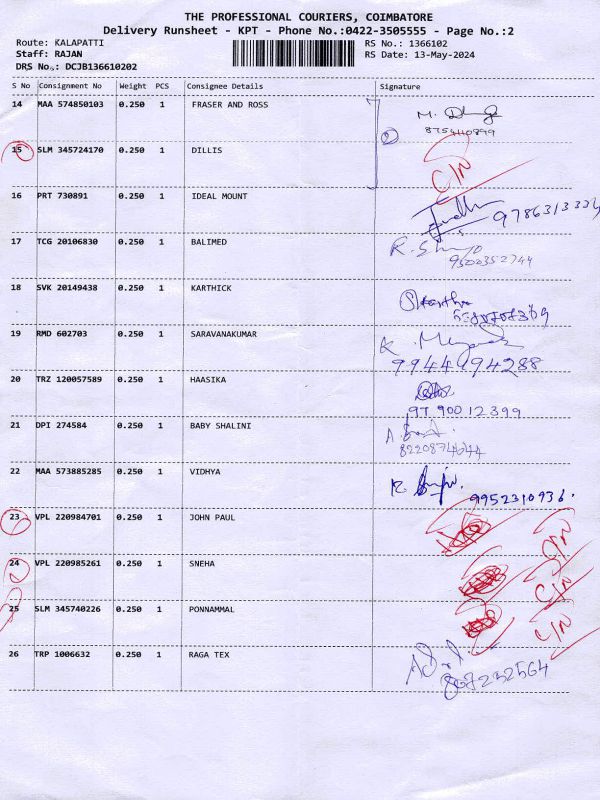 THE PROFESSIONAL COURIERS, COIMBATORE
Delivery Runsheet - KPT - Phone No.:0422-3505555 - Page No.:2
Route: KALAPATTI
RS No.: 1366102
Staff: RAJAN
RS Date: 13-May-2024
DRS No.: DCJB136610202
S No Consignment No Weight PCS Consignee Details Signature
14 MAA 574850103 0.250 1 FRASER AND ROSS
2
15 SLM 345724170 0.250 1 DILLIS C/N
16 PRT 730891 0.250 1 IDEAL MOUNT
17 TCG 20106830 0.250 1 BALIMED
9500352744
18 SVK 20149438 0.250 1 KARTHICK
19 RMD 602703 0.250 1 SARAVANAKUMAR K.
9944494288
20 TRZ 120057589 0.250 1 HAASIKA
97 900 12 399
21 DPI 274584 0.250 1 BABY SHALINI
8220874644
22 MAA 573885285 0.250 1 VIDHYA
9952310936.
23 VPL 220984701 0.250 1 JOHN PAUL C/N
24 VPL 220985261 0.250 1 SNEHA C/N
25 SLM 345740226 0.250 1 PONNAMMAL C/N
26 TRP 1006632 0.250 1 RAGA TEX